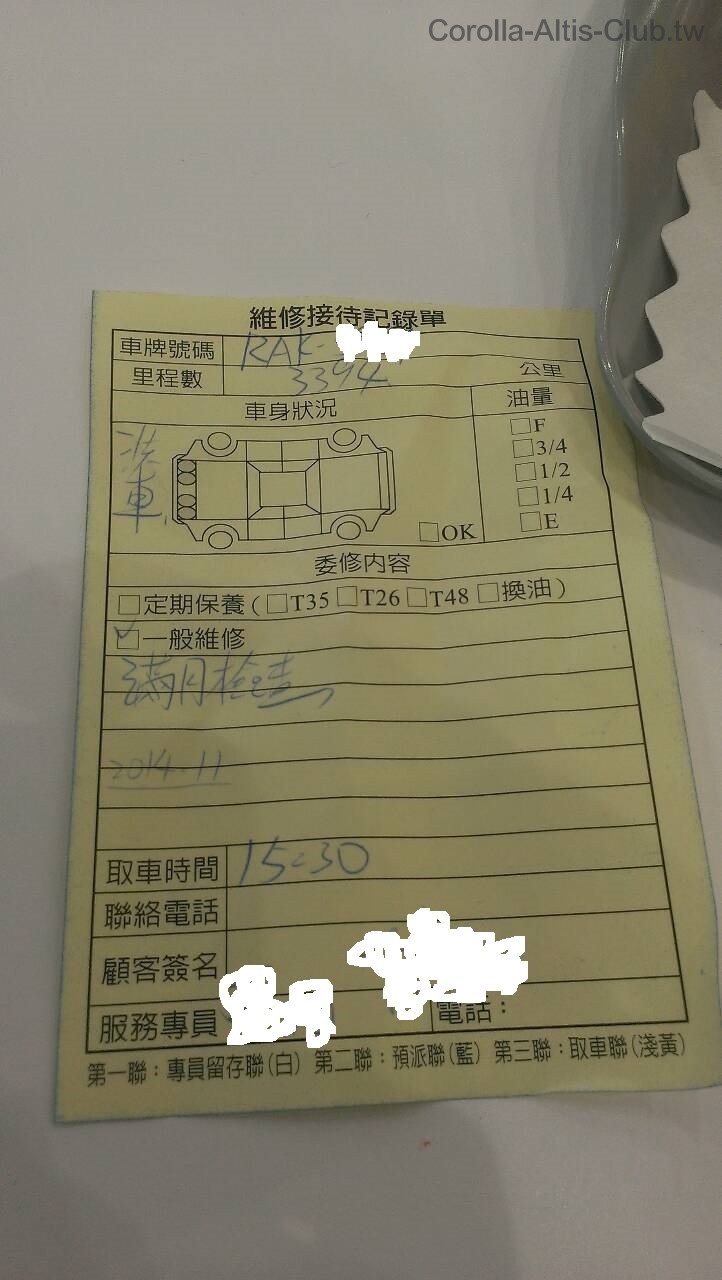 Corolla-Altis-Club.tw
維修接待記錄單
車牌號碼 RAK-
里程數 3394 公里
車身狀況 油量
洗車
□F
□3/4
□1/2
□1/4
□E
□OK
委修內容
□定期保養(□T35 □T26 □T48 □換油)
□一般維修
滿月檢查
2014-11
取車時間 15:30
聯絡電話
顧客簽名
服務專員 電話：
第一聯：專員留存聯(白) 第二聯：預派聯(藍) 第三聯：取車聯(淺黃)